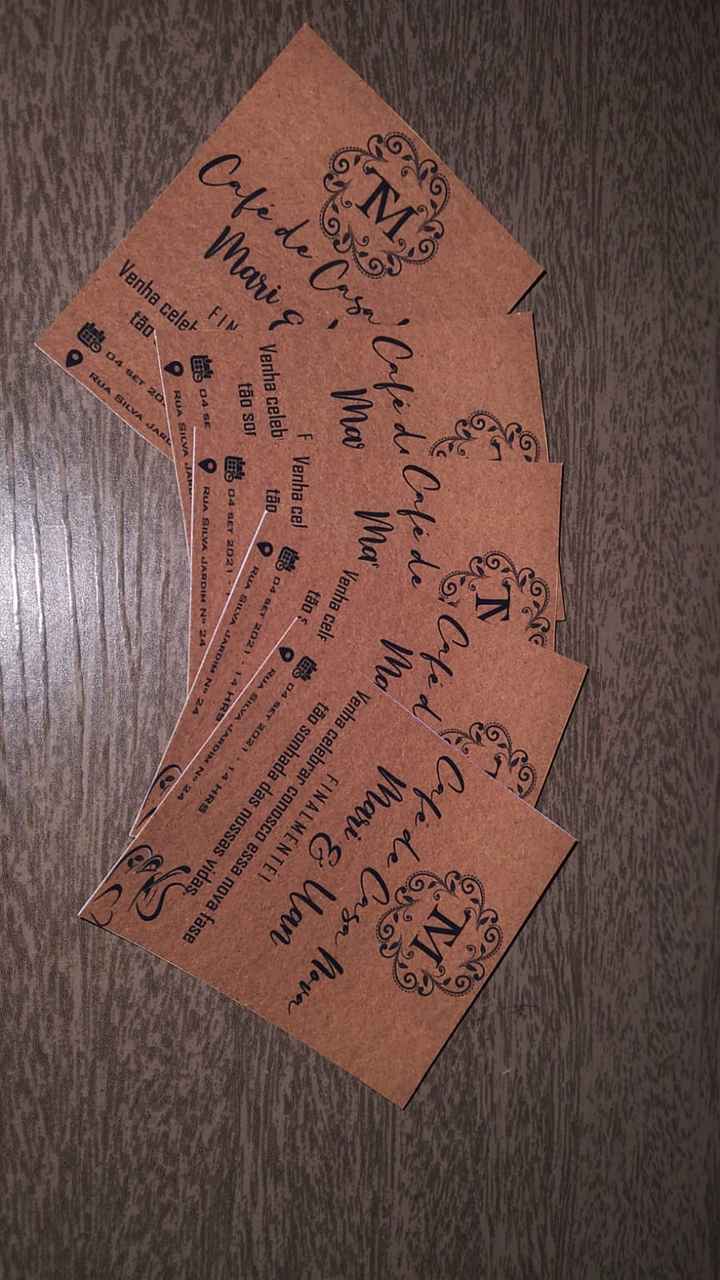 TM
Café de Casa
Mari &
FIN
Venha celeb
tão
04 SET 20
RUA SILVA JARD
Café d
Mar
Venha celeb
tão son
04 SE
RUA SILVA JA
Café de
Mar
F
Venha cel
tão
04 SET 2021 - 1
RUA SILVA JARDIM Nº 24
Café d
Ma
Venha cele
tão s
04 SET 2021 - 14 HRS
RUA SILVA JARDIM Nº 24
TM
Café de Casa Nova
Mari & Uan
FINALMENTE!
Venha celebrar conosco essa nova fase
tão sonhada das nossas vidas
04 SET 2021 - 14 HRS
RUA SILVA JARDIM Nº 24